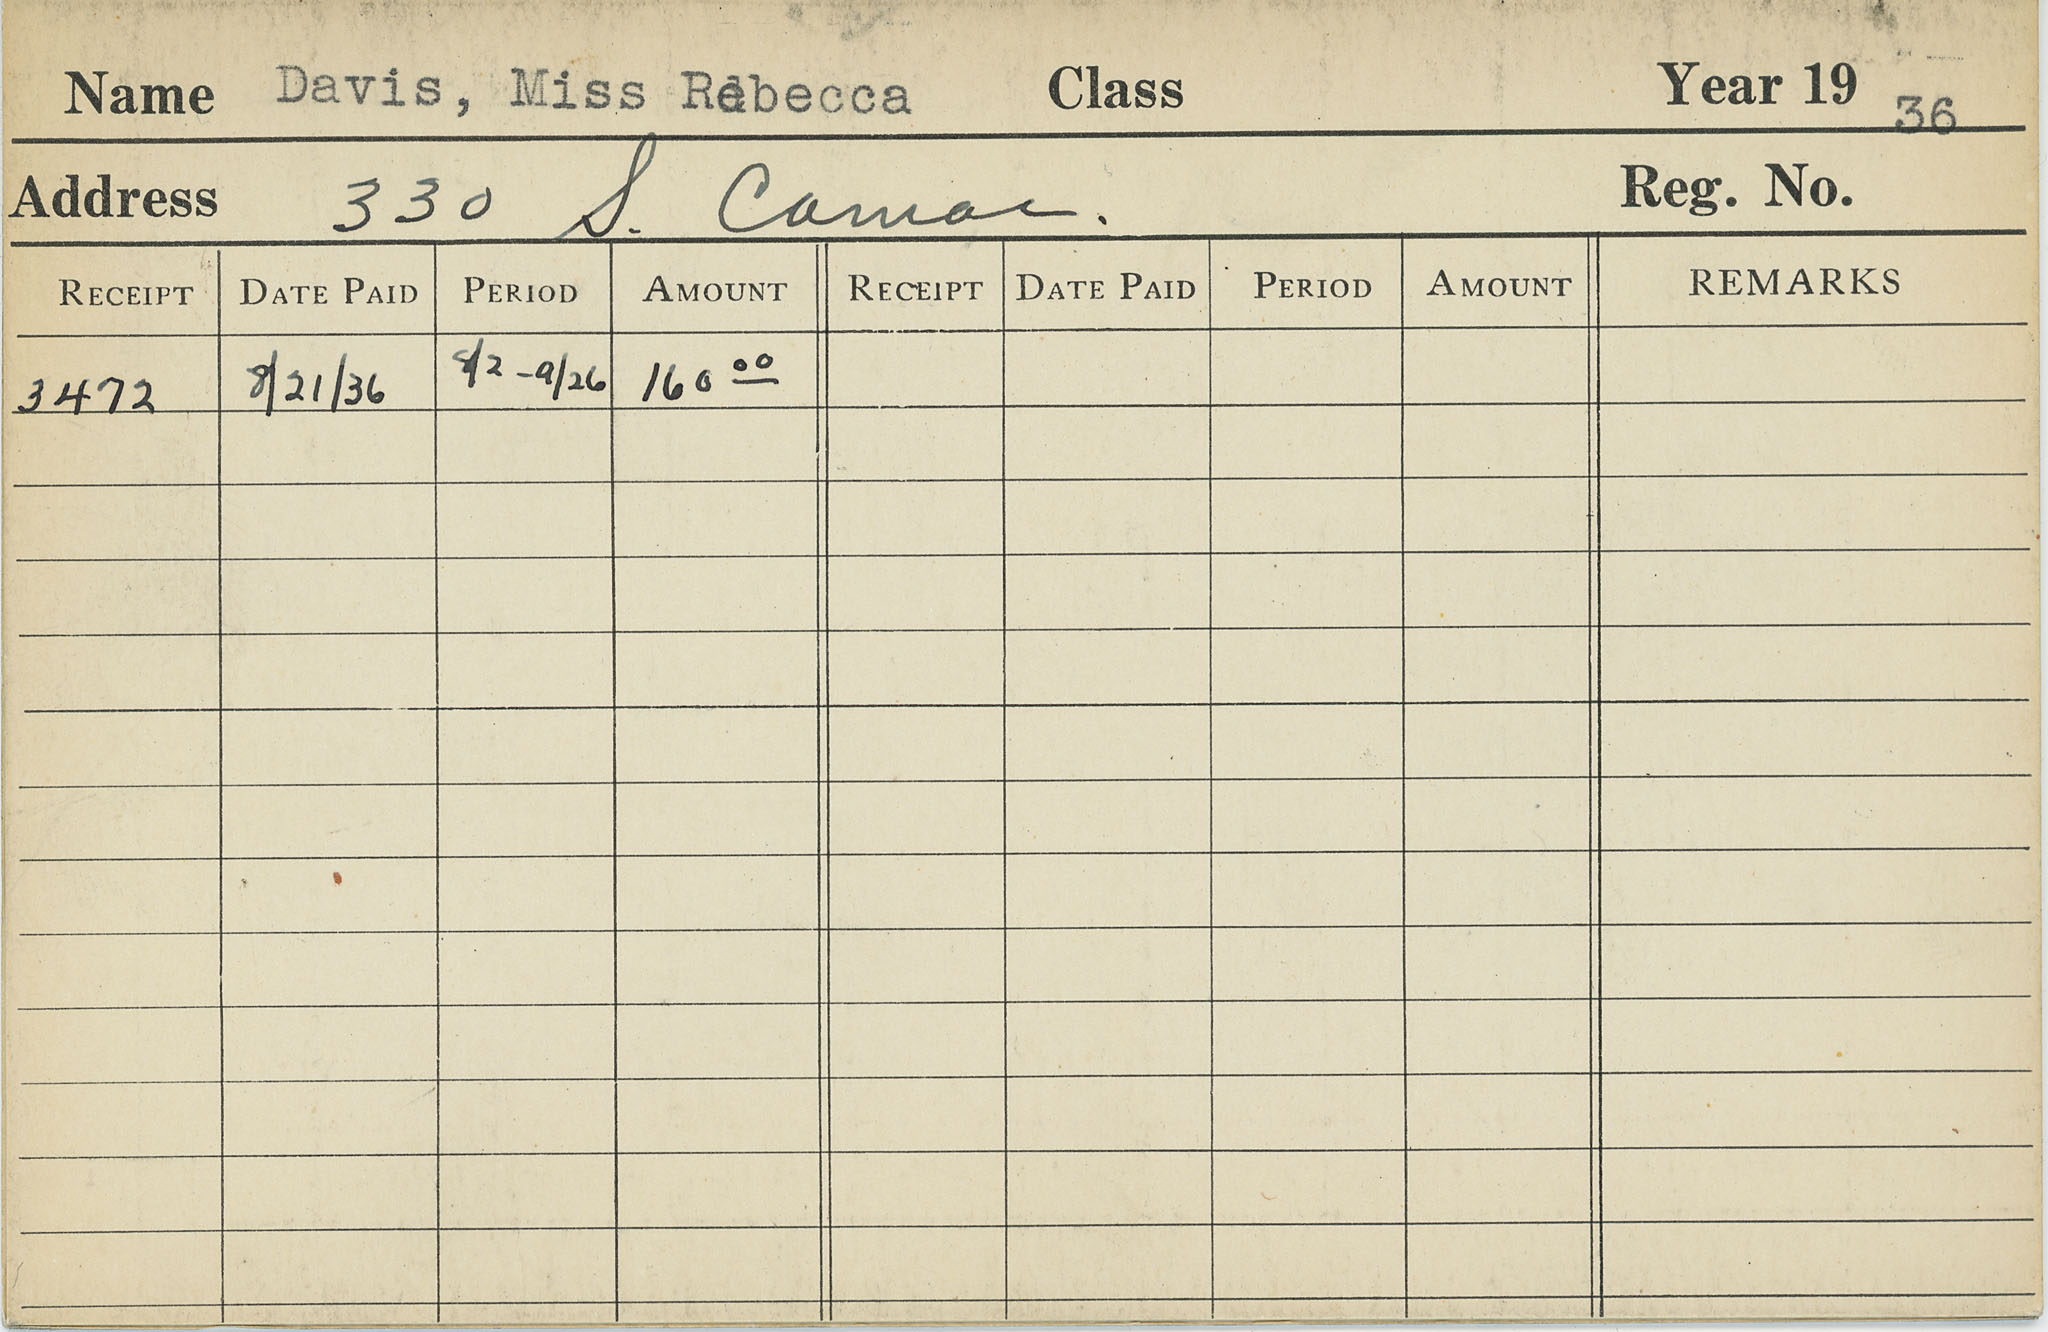 Name Davis, Miss Rebecca Class Year 19 36
Address 330 S. Camac. Reg. No.
RECEIPT DATE PAID PERIOD AMOUNT RECEIPT DATE PAID PERIOD AMOUNT REMARKS
3472 8/21/36 8/2 - 9/26 160 00